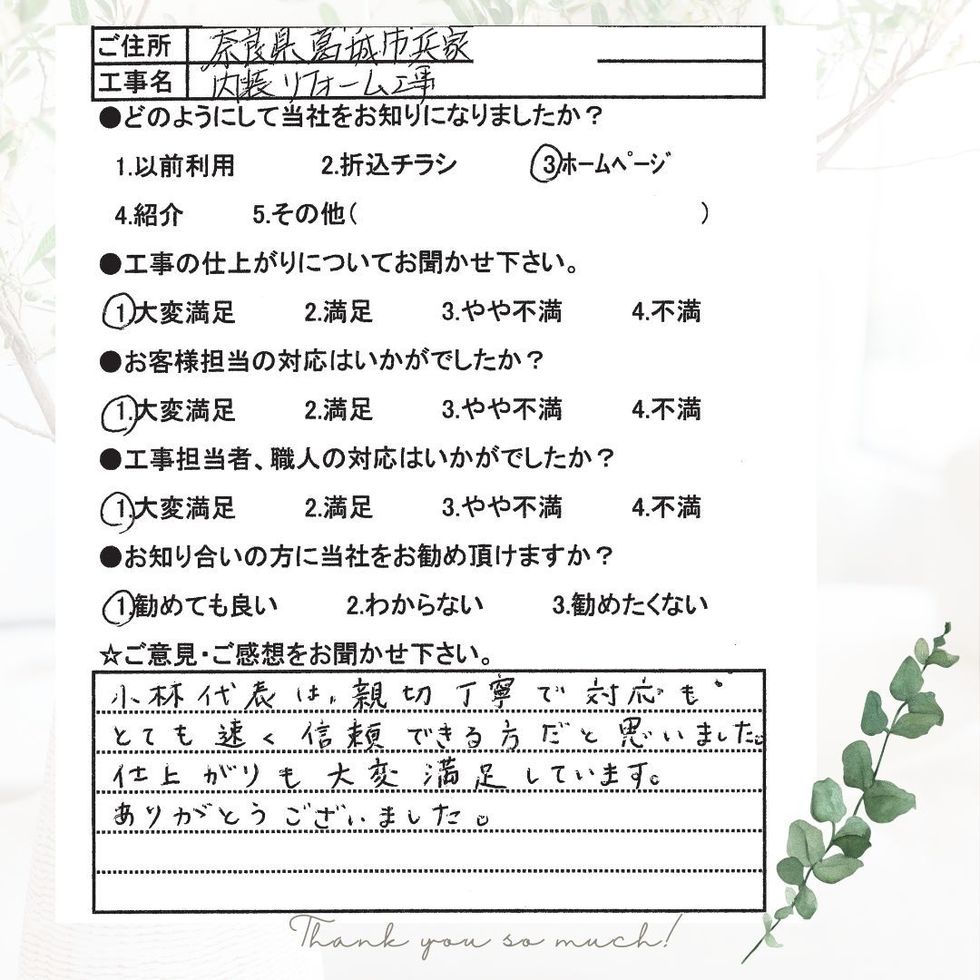 ご住所 奈良県葛城市兵家
工事名 内装リフォーム工事
●どのようにして当社をお知りになりましたか？
1.以前利用 2.折込チラシ 3ホームページ
4.紹介 5.その他( )
●工事の仕上がりについてお聞かせ下さい。
1.大変満足 2.満足 3.やや不満 4.不満
●お客様担当の対応はいかがでしたか？
1.大変満足 2.満足 3.やや不満 4.不満
●工事担当者、職人の対応はいかがでしたか？
1.大変満足 2.満足 3.やや不満 4.不満
●お知り合いの方に当社をお勧め頂けますか？
1.勧めても良い 2.わからない 3.勧めたくない
☆ご意見・ご感想をお聞かせ下さい。
小林代表は、親切丁寧で対応も
とても速く信頼できる方だと思いました。
仕上がりも大変満足しています。
ありがとうございました。
Thank you so much!